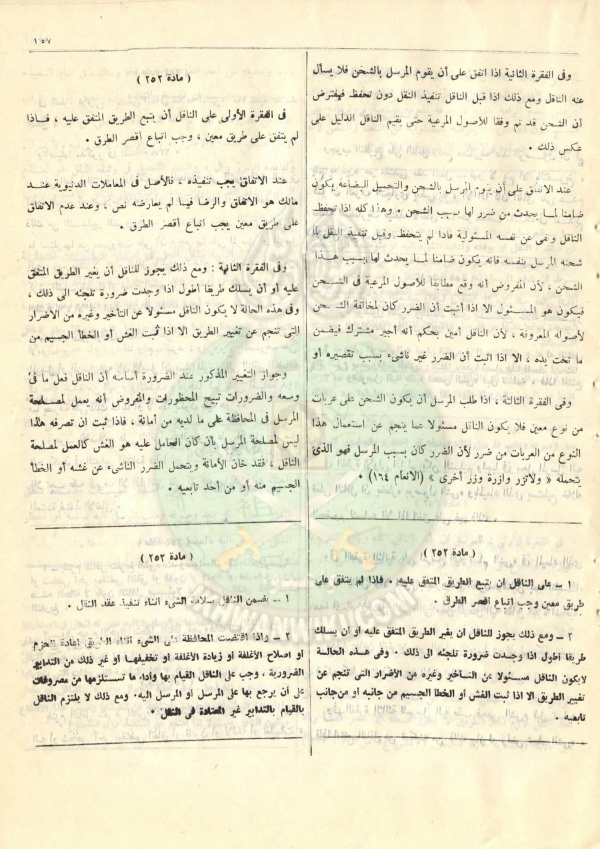 ١٥٧
وفى الفقرة الثانية اذا اتفق على أن يقوم المرسل بالشحن فلا يسأل
عنه الناقل ومع ذلك اذا قبل الناقل تنفيذ النقل دون تحفظ فيفترض
أن الشحن قد تم وفقا للأصول المرعية حتى يقيم الناقل الدليل على
عكس ذلك .
عند الاتفاق على أن يقوم المرسل بالشحن والتحميل البضاعة يكون
ضامنا لما يحدث من ضرر لها بسبب الشحن . وهذا كله اذا تحفظ
الناقل ونفى عن نفسه المسئولية فاذا لم يتحفظ وقبل تنفيذ النقل بما
شحنه المرسل بنفسه فانه يكون ضامنا لما يحدث لها بسبب هذا
الشحن ، لأن المفروض أنه وقع مطابقا للأصول المرعية فى الشحن
فيكون هو المسئول الا اذا أثبت أن الضرر كان لمخالفة الشحن
لأصوله المعروفة ، لأن الناقل أمين بحكم أنه أجير مشترك فيضمن
ما تحت يده ، الا اذا اثبت أن الضرر غير ناشىء بسبب تقصيره أو
وفى الفقرة الثالثة ، اذا طلب المرسل أن يكون الشحن على عربات
من نوع معين فلا يكون الناقل مسئولا عما ينجم عن استعمال هذا
النوع من العربات من ضرر لأن الضرر كان بسبب المرسل فهو الذى
يتحمله « ولاتزر وازرة وزر أخرى » (الانعام ١٦٤) .
( مادة ٢٥٢ )
١ – على الناقل ان يتبع الطريق المتفق عليه . فاذا لم يتفق على
طريق معين وجب اتباع أقصر الطرق .
٢ – ومع ذلك يجوز للناقل أن يغير الطريق المتفق عليه او ان يسلك
طريقا اطول اذا وجدت ضرورة تلجئه الى ذلك . وفى هذه الحالة
لايكون الناقل مسئولا عن التأخير وغيره من الأضرار التى تنجم عن
تغيير الطريق الا اذا ثبت الغش أو الخطا الجسيم من جانبه او من جانب
تابعيه .
( مادة ٢٥٢ )
فى الفقرة الأولى على الناقل أن يتبع الطريق المتفق عليه ، فاذا
لم يتفق على طريق معين ، وجب اتباع أقصر الطرق .
عند الاتفاق يجب تنفيذه ، فالأصل فى المعاملات الدنيوية عند
مالك هو الاتفاق والرضا فيما لم يعارضه نص ، وعند عدم الاتفاق
على طريق معين يجب اتباع أقصر الطرق .
وفى الفقرة الثانية : ومع ذلك يجوز للناقل أن يغير الطريق المتفق
عليه أو أن يسلك طريقا أطول اذا وجدت ضرورة تلجئه الى ذلك ،
وفى هذه الحالة لا يكون الناقل مسئولا عن التأخير وغيره من الأضرار
التى تنجم عن تغيير الطريق الا اذا ثبت الغش أو الخطأ الجسيم من
وجواز التغيير المذكور عند الضرورة أساسه أن الناقل فعل ما فى
وسعه والضرورات تبيح المحظورات والمفروض أنه يعمل لمصلحة
المرسل فى المحافظة على ما لديه من أمانة ، فاذا ثبت ان تصرفه هذا
ليس لمصلحة المرسل بأن كان الحامل عليه هو الغش كالعمل لمصلحة
الناقل ، فقد خان الأمانة ويتحمل الضرر الناشىء عن غشه أو الخطأ
الجسيم منه أو من أحد تابعيه .
( مادة ٢٥٣ )
١ – يضمن الناقل سلامة الشىء اثناء تنفيذ عقد النقل .
٢ – واذا اقتضت المحافظة على الشىء أثناء الطريق إعادة الحزم
او اصلاح الأغلفة او زيادة الأغلفة أو تخفيفها او غير ذلك من التدابير
الضرورية ، وجب على الناقل القيام بها وأداء ما تستلزمها من مصروفات
على أن يرجع بها على المرسل أو المرسل اليه. ومع ذلك لا يلتزم الناقل
بالقيام بالتدابير غير المعتادة فى النقل .